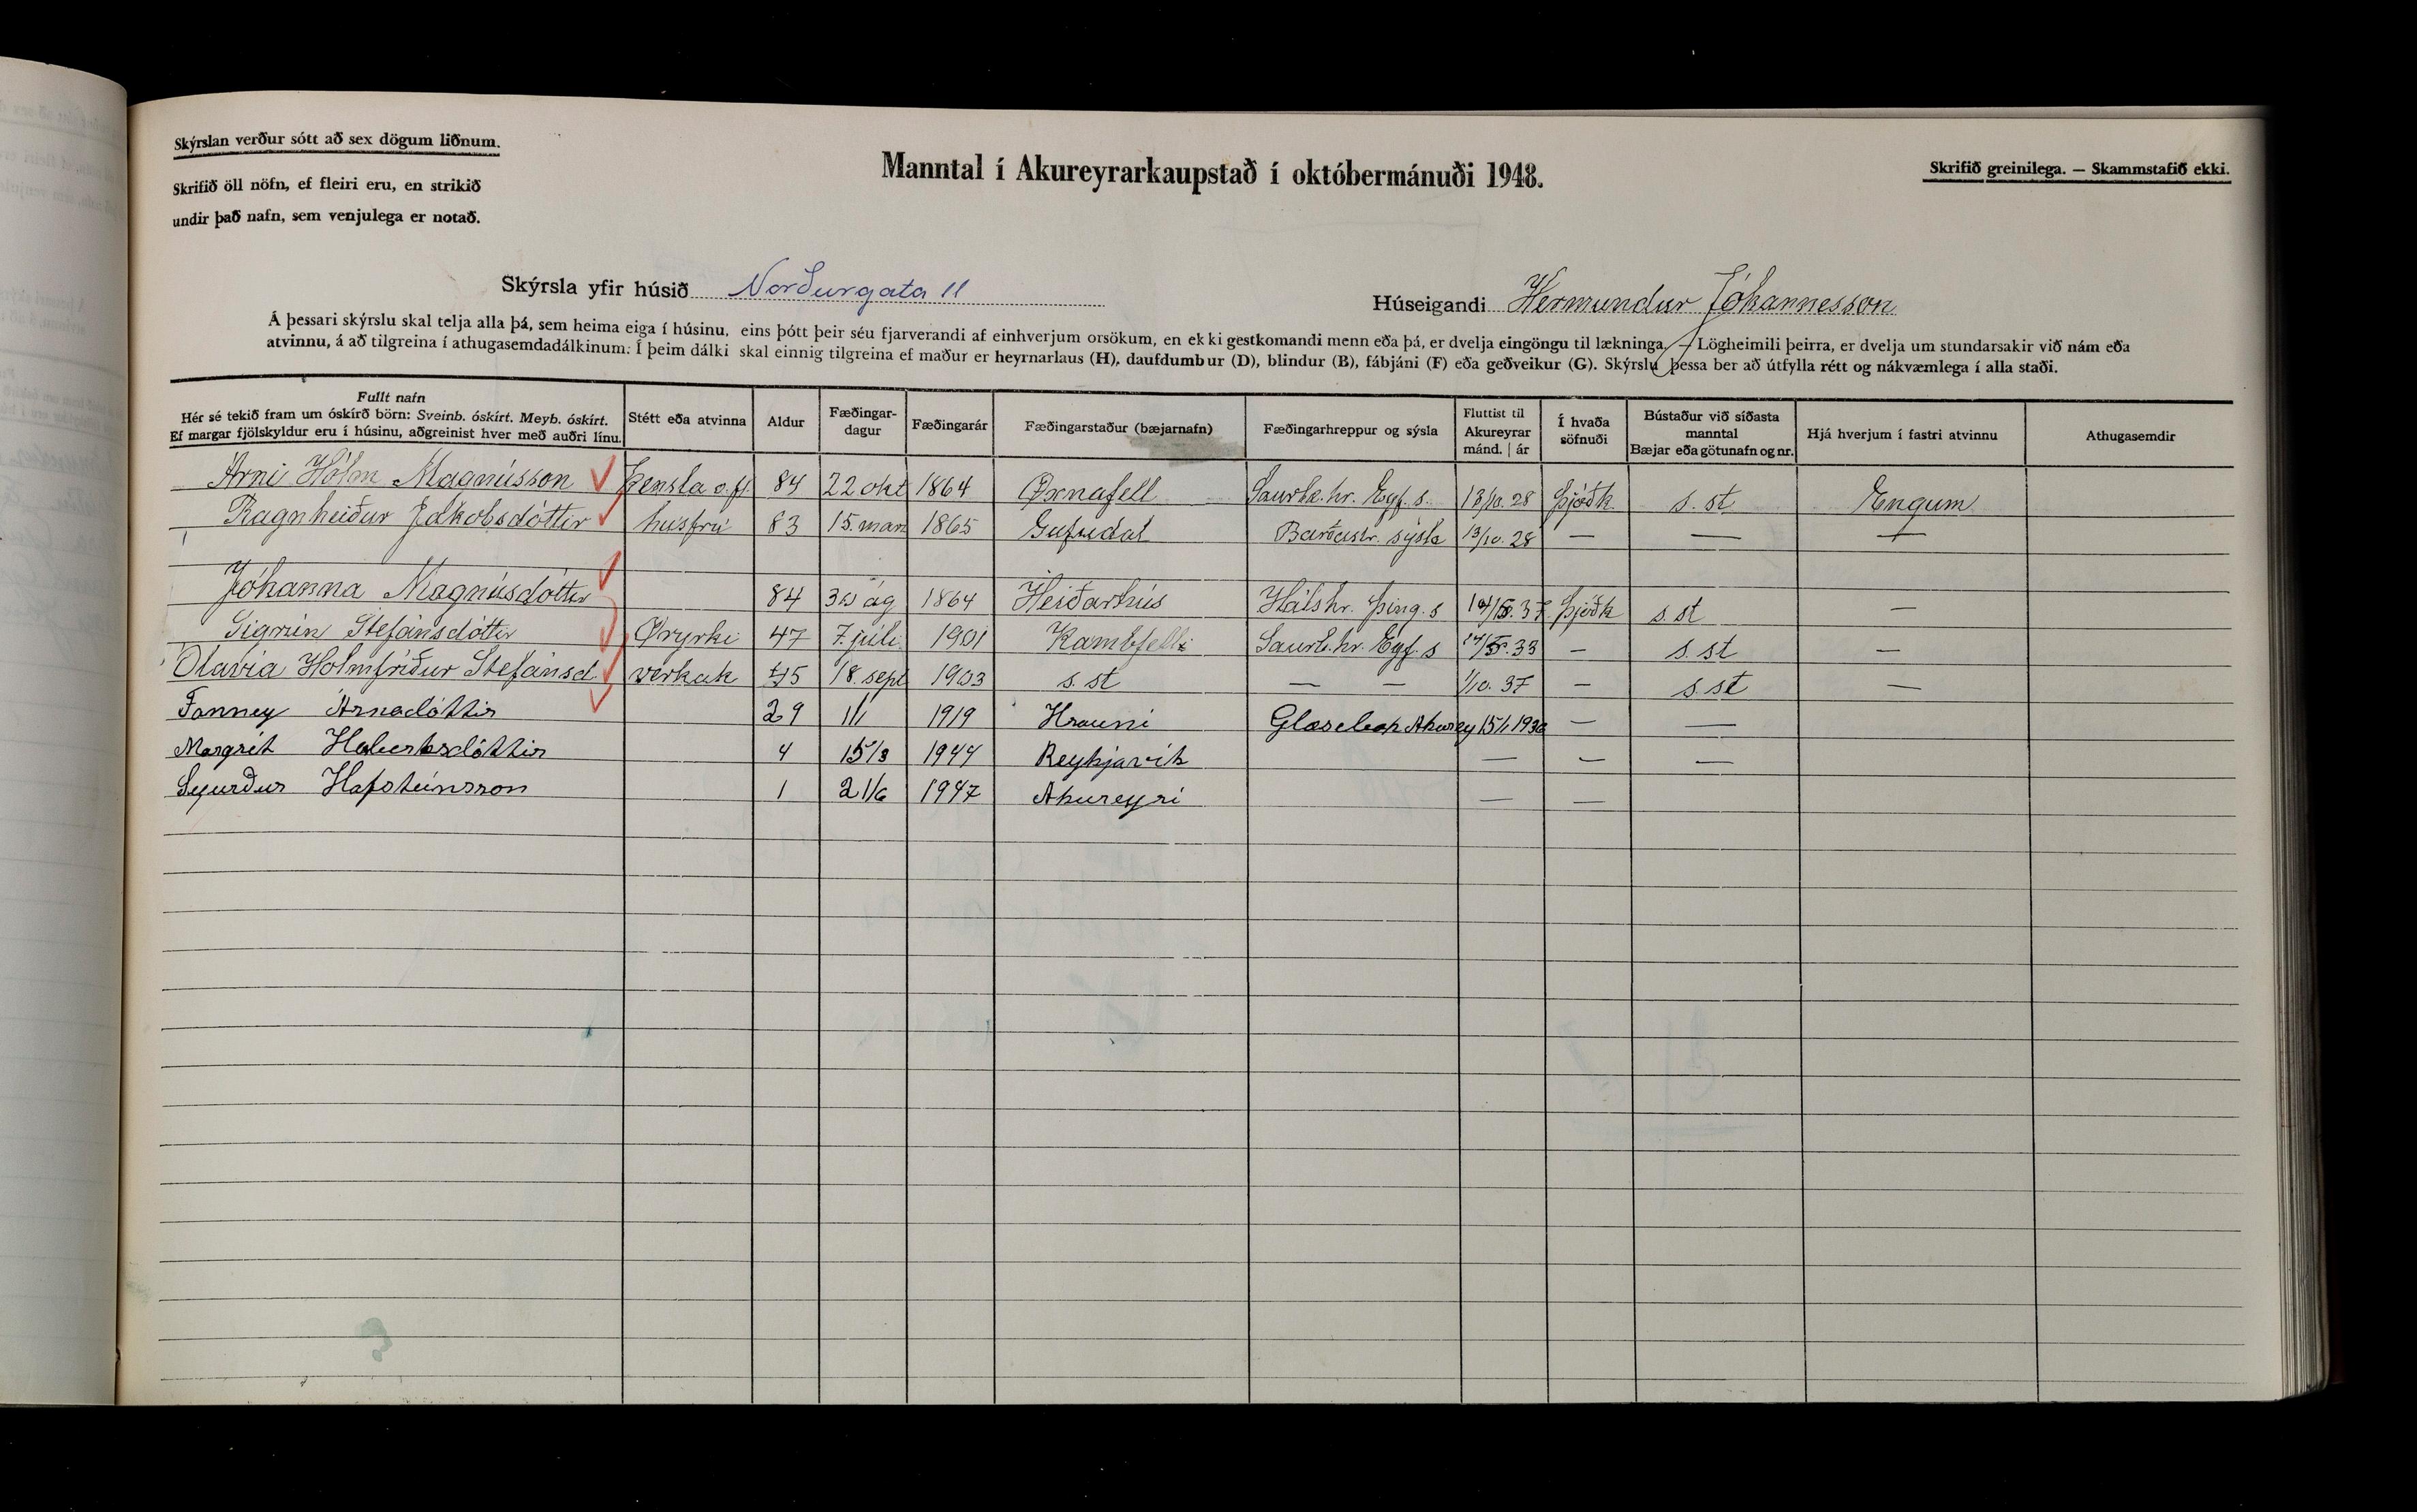 Skýrslan verður sótt að sex dögum liðnum.
Skrifið öll nöfn, ef fleiri eru, en strikið
undir það nafn, sem venjulega er notað.
Manntal í Akureyrarkaupstað í októbermánuði 1948.
Skrifið greinilega. — Skammstafið ekki.
Skýrsla yfir húsið Norðurgata 11
Húseigandi Hermundur Jóhannesson
Á þessari skýrslu skal telja alla þá, sem heima eiga í húsinu, eins þótt þeir séu fjarverandi af einhverjum orsökum, en ekki gestkomandi menn eða þá, er dvelja eingöngu til lækninga. — Lögheimili þeirra, er dvelja um stundarsakir við nám eða
atvinnu, á að tilgreina í athugasemdadálkinum. Í þeim dálki skal einnig tilgreina ef maður er heyrnarlaus (H), daufdumbur (D), blindur (B), fábjáni (F) eða geðveikur (G). Skýrslu þessa ber að útfylla rétt og nákvæmlega í alla staði.
Fullt nafn
Hér sé tekið fram um óskírð börn: Sveinb. óskírt. Meyb. óskírt.
Ef margar fjölskyldur eru í húsinu, aðgreinist hver með auðri línu.
Stétt eða atvinna
Aldur
Fæðingar-
dagur
Fæðingarár
Fæðingarstaður (bæjarnafn)
Fæðingarhreppur og sýsla
Fluttist til
Akureyrar
mánd. | ár
Í hvaða
söfnuði
Bústaður við síðasta
manntal
Bæjar eða götunafn og nr.
Hjá hverjum í fastri atvinnu
Athugasemdir
Árni Hólm Magnússon Kensla o. fl. 84 22 okt 1864 Öxnafell Saurb. hr. Eyf. s. 13/10. 28 Þjóðk. s. st Engum
Ragnheiður Jakobsdóttir húsfrú 83 15. mar 1865 Gufudal Barðastr. sýsla 13/10. 28 — — —
Jóhanna Magnúsdóttir 84 ág 1864 Heiðarhús Hálshr. Þing. s 37 Þjóðk s. st —
Sigrún Stefánsdóttir Öryrki 47 7. júlí 1901 Kambfelli Saurb. hr. Eyf. s 33 — s. st —
Olavía Hólmfríður Stefánsd. verkak 45 18. sept 1903 s. st — — 1/10. 37 — s. st —
Fanney Árnadóttir 29 1/1 1919 Hrauni Akurey 15/1 — —
Margrét 4 15/3 1944 Reykjavík — — —
Sigurður Hafsteinsson 1 21/6 1947 Akureyri — —